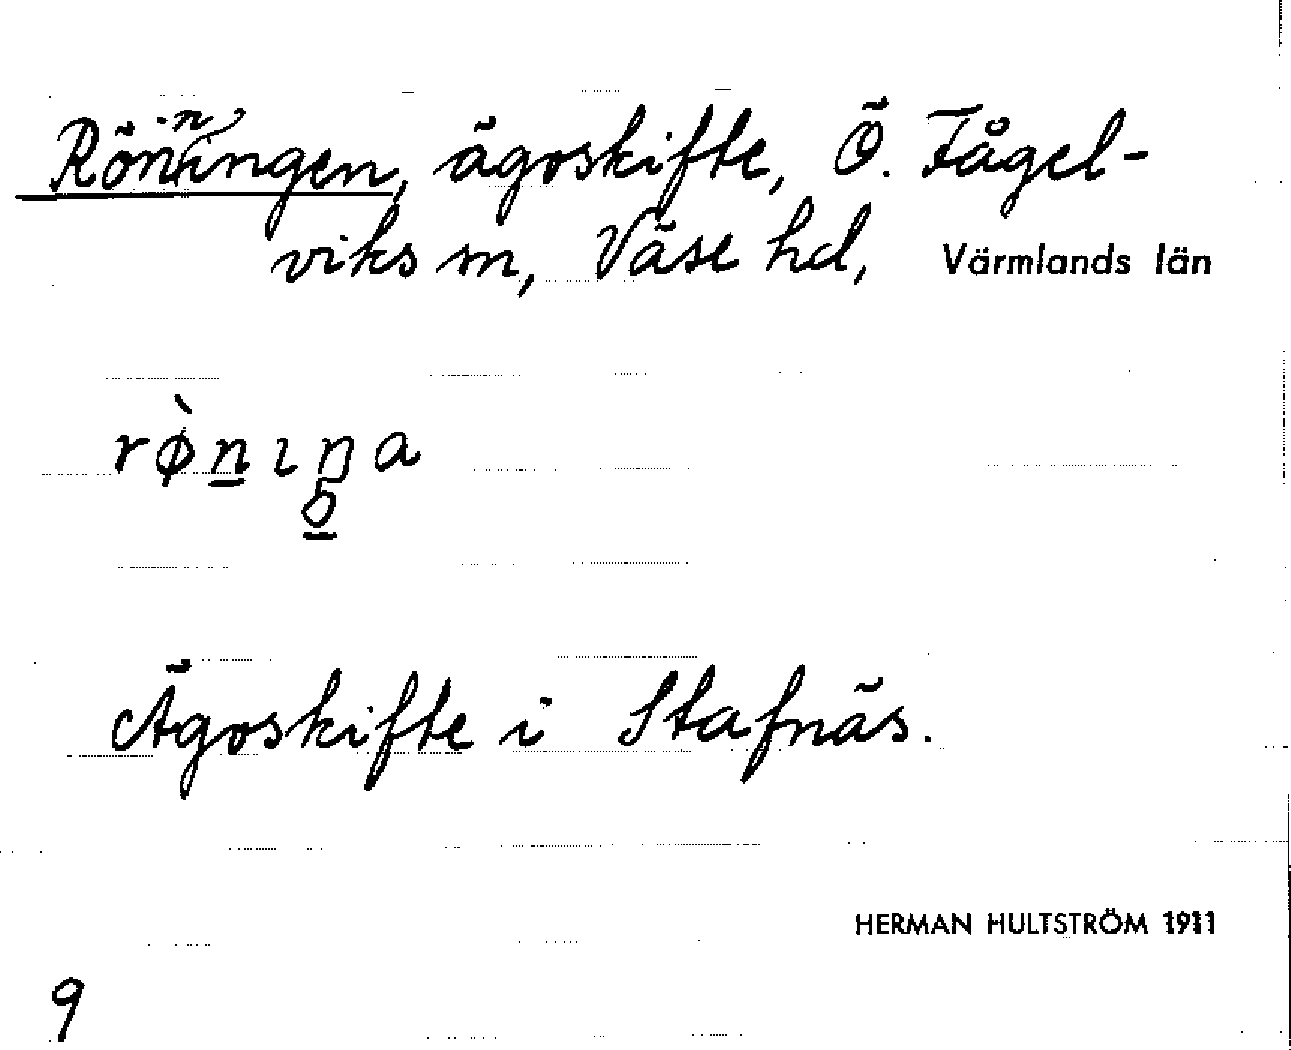 Rönningen, ägoskifte, Ö. Fågel-
viks sn, Väse hd, Värmlands län
rø̀nıŋa
Ägoskifte i Stafnäs.
HERMAN HULTSTRÖM 1911
9